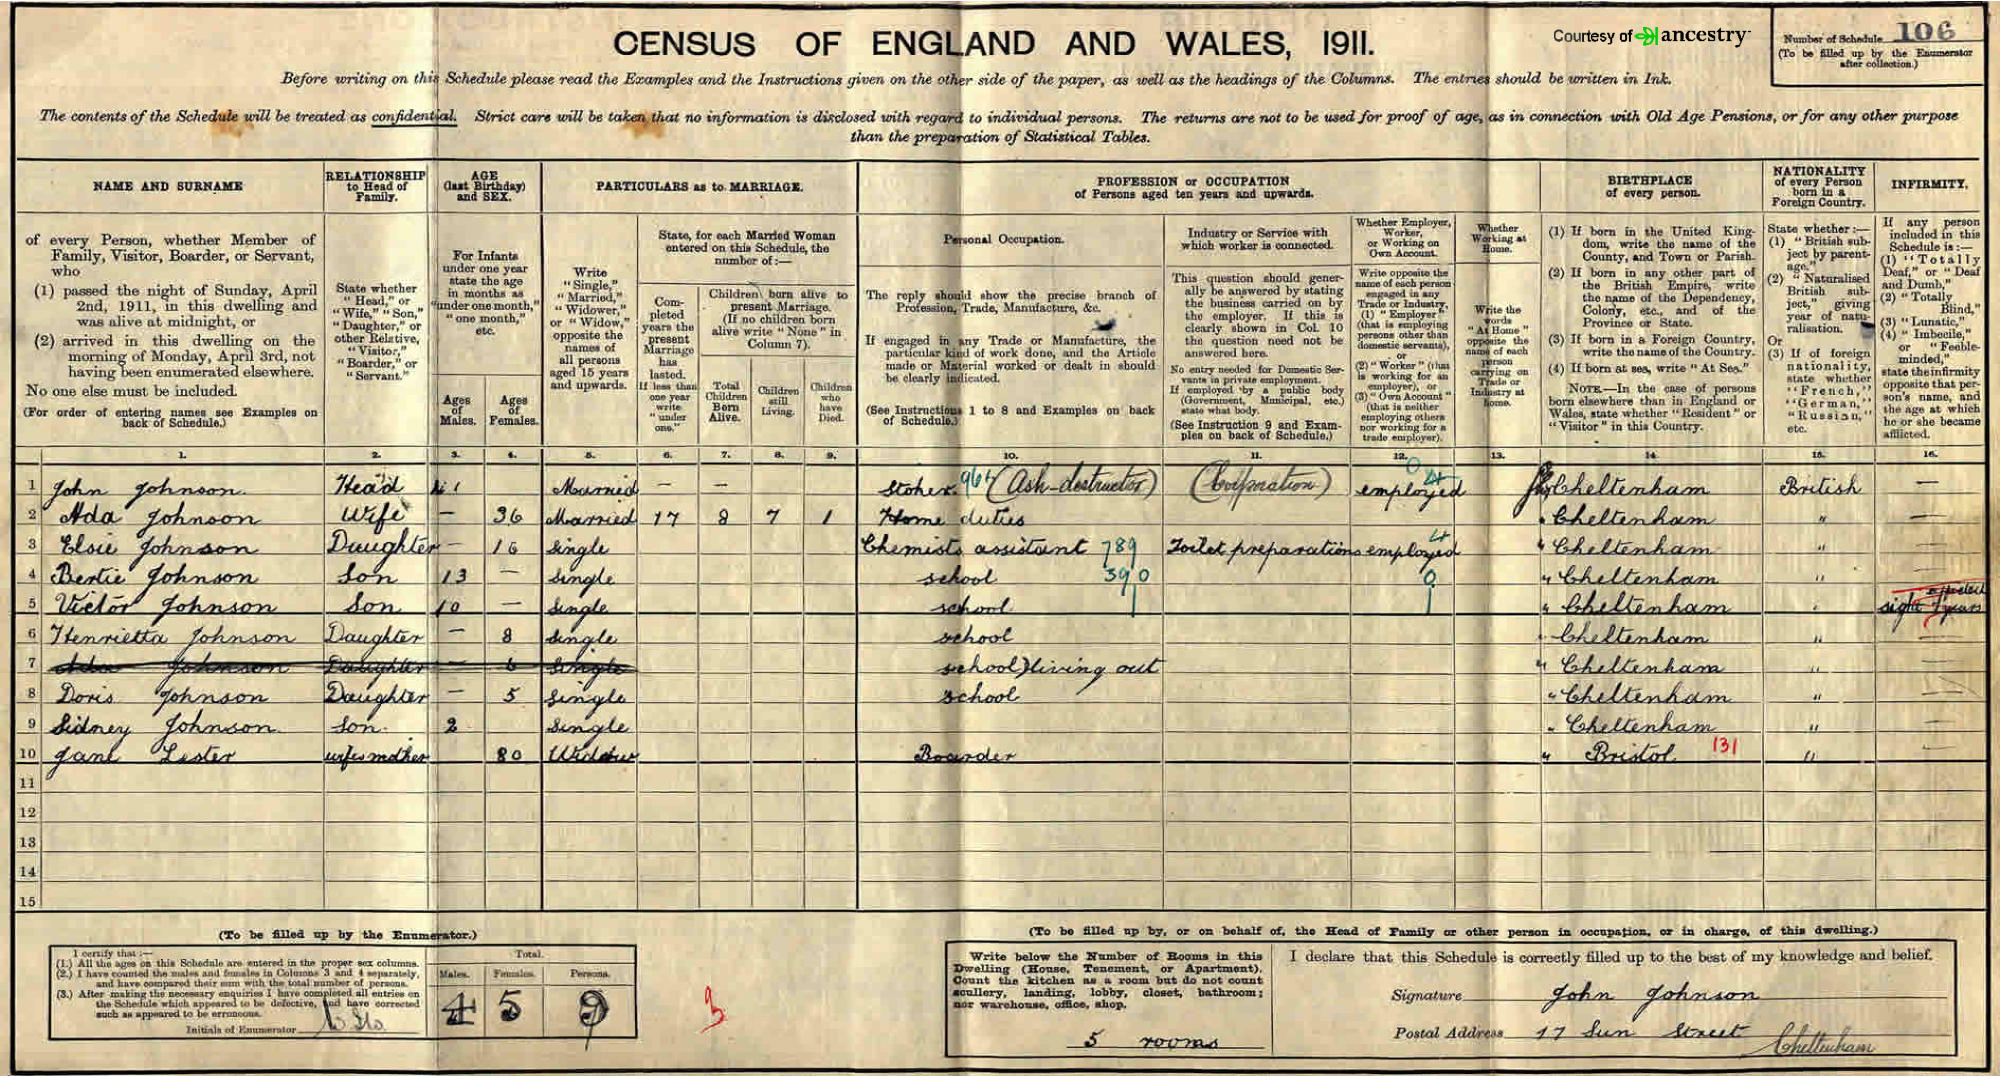 CENSUS OF ENGLAND AND WALES, 1911.
Courtesy of ancestry
Number of Schedule 106
(To be filled up by the Enumerator
after collection.)
Before writing on this Schedule please read the Examples and the Instructions given on the other side of the paper, as well as the headings of the Columns. The entries should be written in Ink.
The contents of the Schedule will be treated as confidential. Strict care will be taken that no information is disclosed with regard to individual persons. The returns are not to be used for proof of age, as in connection with Old Age Pensions, or for any other purpose
than the preparation of Statistical Tables.
NAME AND SURNAME
of every Person, whether Member of
Family, Visitor, Boarder, or Servant,
who
(1) passed the night of Sunday, April
2nd, 1911, in this dwelling and
was alive at midnight, or
(2) arrived in this dwelling on the
morning of Monday, April 3rd, not
having been enumerated elsewhere.
No one else must be included.
(For order of entering names see Examples on
back of Schedule.)
RELATIONSHIP
to Head of
Family.
State whether
"Head," or
"Wife," "Son,"
"Daughter," or
other Relative,
"Visitor,"
"Boarder," or
"Servant."
AGE
(last Birthday)
and SEX.
For Infants
under one year
state the age
in months as
"under one month,"
"one month,"
etc.
Ages
of
Males.
Ages
of
Females.
PARTICULARS as to MARRIAGE.
Write
"Single,"
"Married,"
"Widower,"
or "Widow,"
opposite the
names of
all persons
aged 15 years
and upwards.
State, for each Married Woman
entered on this Schedule, the
number of:—
Com-
pleted
years the
present
Marriage
has
lasted.
If less than
one year
write
"under
one."
Children born alive to
present Marriage.
(If no children born
alive write "None" in
Column 7).
Total
Children
Born
Alive.
Children
still
Living.
Children
who
have
Died.
PROFESSION or OCCUPATION
of Persons aged ten years and upwards.
Personal Occupation.
The reply should show the precise branch of
Profession, Trade, Manufacture, &c.
If engaged in any Trade or Manufacture, the
particular kind of work done, and the Article
made or Material worked or dealt in should
be clearly indicated.
(See Instructions 1 to 8 and Examples on back
of Schedule.)
Industry or Service with
which worker is connected.
This question should gener-
ally be answered by stating
the business carried on by
the employer. If this is
clearly shown in Col. 10
the question need not be
answered here.
No entry needed for Domestic Ser-
vants in private employment.
If employed by a public body
(Government, Municipal, etc.)
state what body.
(See Instruction 9 and Exam-
ples on back of Schedule.)
Whether Employer,
Worker,
or Working on
Own Account.
Write opposite the
name of each person
engaged in any
Trade or Industry,
(1) "Employer"
(that is employing
persons other than
domestic servants),
or
(2) "Worker" (that
is working for an
employer), or
(3) "Own Account"
(that is neither
employing others
nor working for a
trade employer).
Whether
Working at
Home.
Write the
words
"At Home"
opposite the
name of each
person
carrying on
Trade or
Industry at
home.
BIRTHPLACE
of every person.
(1) If born in the United King-
dom, write the name of the
County, and Town or Parish.
(2) If born in any other part of
the British Empire, write
the name of the Dependency,
Colony, etc., and of the
Province or State.
(3) If born in a Foreign Country,
write the name of the Country.
(4) If born at sea, write "At Sea."
NOTE.—In the case of persons
born elsewhere than in England or
Wales, state whether "Resident" or
"Visitor" in this Country.
NATIONALITY
of every Person
born in a
Foreign Country.
State whether:—
(1) "British sub-
ject by parent-
age,"
(2) "Naturalised
British sub-
ject," giving
year of natu-
ralisation.
Or
(3) If of foreign
nationality,
state whether
"French,"
"German,"
"Russian,"
etc.
INFIRMITY.
If any person
included in this
Schedule is:—
(1) "Totally
Deaf," or "Deaf
and Dumb,"
(2) "Totally
Blind,"
(3) "Lunatic,"
(4) "Imbecile,"
or "Feeble-
minded,"
state the infirmity
opposite that per-
son's name, and
the age at which
he or she became
afflicted.
1. 2. 3. 4. 5. 6. 7. 8. 9. 10. 11. 12. 13. 14. 15. 16.
1 John Johnson. Head 41 Married — — Stoker 964 (Ash-destructor) (Corporation) employed Cheltenham British —
2 Ada Johnson Wife — 36 Married 17 8 7 1 Home duties " Cheltenham " —
3 Elsie Johnson Daughter — 16 Single Chemists assistant 789 Toilet preparations employed " Cheltenham " —
4 Bertie Johnson Son 13 — Single school 390 0 " Cheltenham " —
5 Victor Johnson Son 10 — Single school " Cheltenham " sight affected 7 years
6 Henrietta Johnson Daughter — 8 Single school " Cheltenham " —
7 Ada Johnson Daughter — 6 Single school) living out " Cheltenham " —
8 Doris Johnson Daughter — 5 Single school " Cheltenham " —
9 Sidney Johnson. Son. 2 Single " Cheltenham " —
10 Jane Lester wifes mother 80 Widow Boarder " Bristol 131 "
11
12
13
14
15
(To be filled up by the Enumerator.)
I certify that:—
(1.) All the ages on this Schedule are entered in the proper sex columns.
(2.) I have counted the males and females in Columns 3 and 4 separately,
and have compared their sum with the total number of persons.
(3.) After making the necessary enquiries I have completed all entries on
the Schedule which appeared to be defective, and have corrected
such as appeared to be erroneous.
Initials of Enumerator
Total.
Males. Females. Persons.
4 5 9
(To be filled up by, or on behalf of, the Head of Family or other person in occupation, or in charge, of this dwelling.)
Write below the Number of Rooms in this
Dwelling (House, Tenement, or Apartment).
Count the kitchen as a room but do not count
scullery, landing, lobby, closet, bathroom;
nor warehouse, office, shop.
5 rooms
I declare that this Schedule is correctly filled up to the best of my knowledge and belief.
Signature John Johnson
Postal Address 17 Sun Street Cheltenham